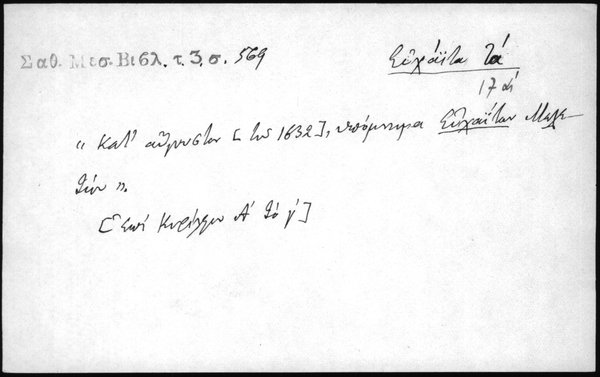 Σαθ. Μεσ. Βιβλ. τ. 3. σ. 569
Εὐχάϊτα τά
17 αἰ
« Κατ' αὔγουστον [τοῦ 1632], ὑπόμνημα Εὐχαΐτων Μελε
τίου ».
[Ἐπί Κυρίλλου Α' τό γ']